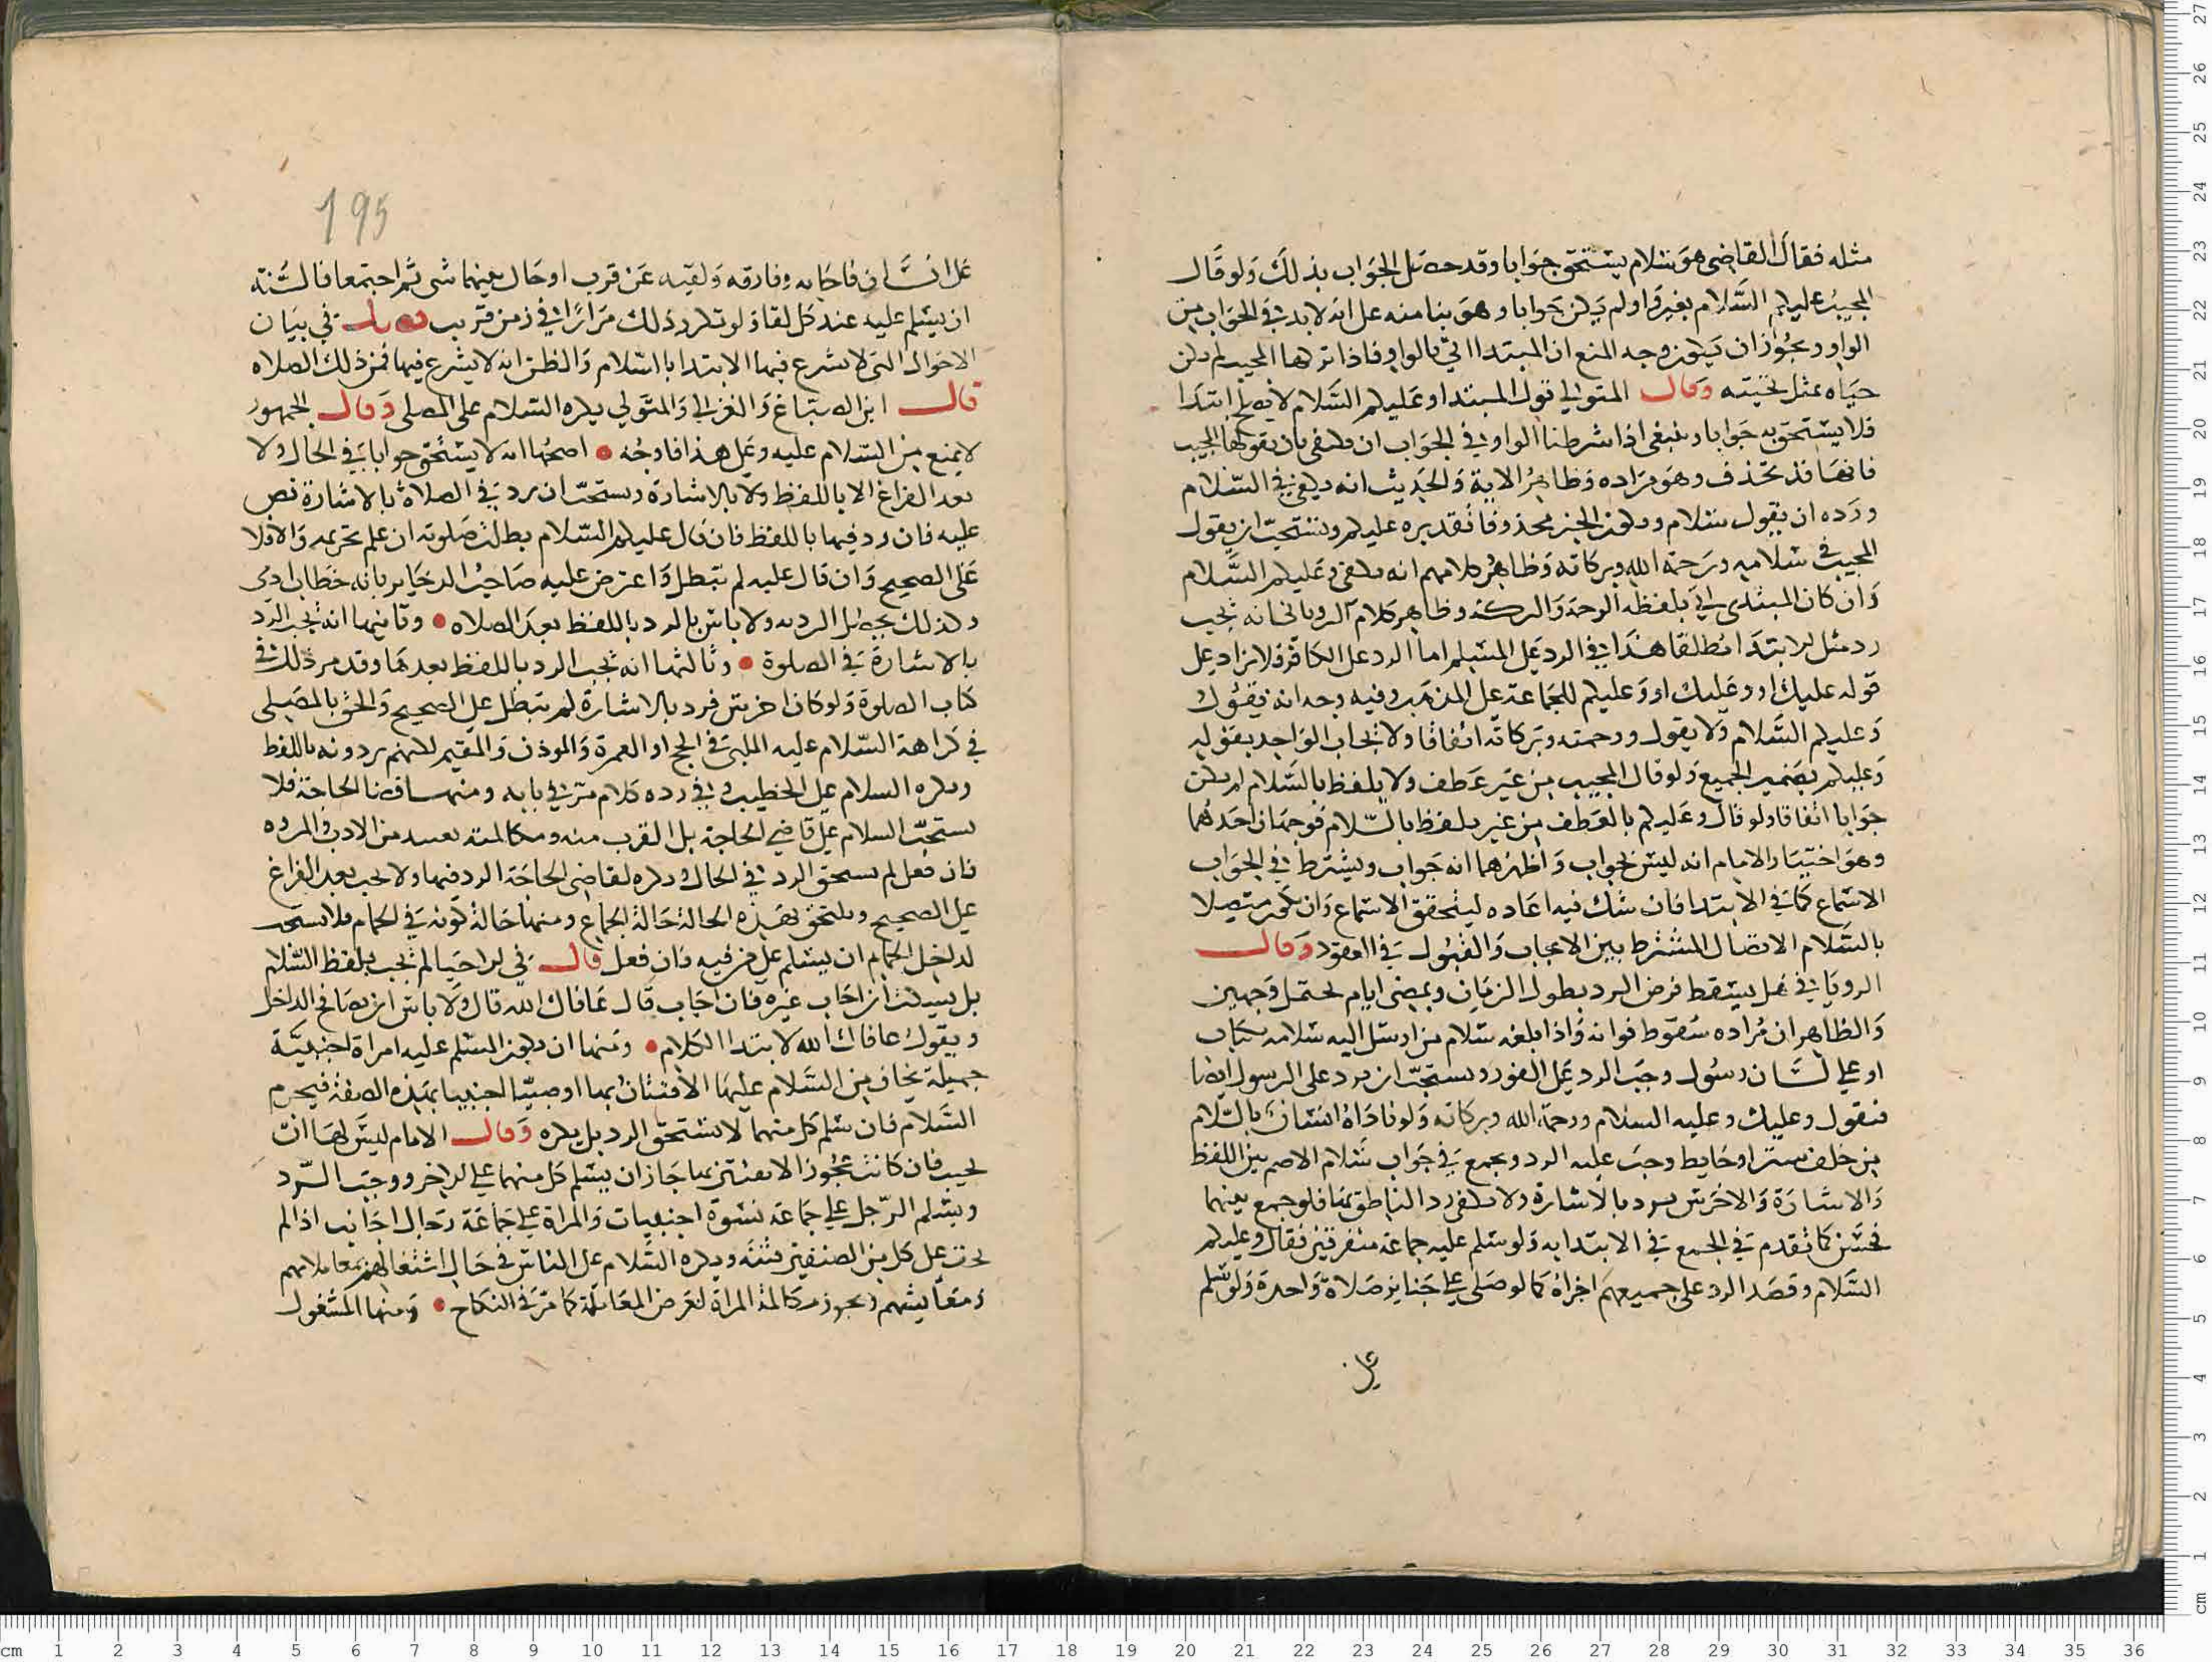 مثله فقال القاضي هو سلام يستحق جوابا وقد حصل الجواب بذلك ولو قال
المجيب عليكم السلام بغير واو لم يكن جوابا وهو بنا منه على انه لابد في الجواب من
الواو ويجوز ان يكون وجه المنع ان المبتدا اتى بالواو فاذا تركها المجيب لم يكن
حياه بمثل تحيته وقال المتولي قول المبتدا وعليكم السلام لا يصلح ابتدا
فلا يستحق به جوابا وينبغي اذا شرطنا الواو في الجواب ان يكفي بان يقولها المجيب
فانها قد تحذف وهو مراده وظاهر الاية والحديث انه يكفي في السلام
ورده ان يقول سلام ويكون الخبر محذوفا تقديره عليكم ويستحب ان يقول
المجيب في سلامه ورحمة الله وبركاته وظاهر كلامهم انه يكفي وعليكم السلام
وان كان المبتدي اتى بلفظه الرحمة والبركة وظاهر كلام الروياني انه يجب
رد مثل الابتدا مطلقا هذا في الرد على المسلم اما الرد على الكافر فلا يزاد على
قوله عليك او وعليك او وعليكم للجماعة على المذهب وفيه وجه انه يقول
وعليكم السلام ولا يقول ورحمته وبركاته اتفاقا ولا يجاب الواحد بقوله
وعليكم بضمير الجميع ولو قال المجيب من غير عطف ولا يلفظ بالسلام لم يكن
جوابا اتفاقا ولو قال وعليكم بالعطف من غير يلفظ بالسلام فوجهان احدهما
وهو اختيار الامام انه ليس بجواب واظهرهما انه جواب ويشترط في الجواب
الاسماع كما في الابتدا فان شك فيه اعاده ليتحقق الاسماع وان يكون متصلا
بالسلام الاتصال المشترط بين الايجاب والقبول في العقود وقال
الروياني هل يسقط فرض الرد بطول الزمان وبمضي ايام يحتمل وجهين
والظاهر ان مراده سقوط فواته واذا بلغه سلام من ارسل اليه سلامه بكتاب
او على لسان رسول وجب الرد على الفور ويستحب ان يرد على الرسول ايضا
فيقول وعليك وعليه السلام ورحمة الله وبركاته ولو ناداه انسان بالسلام
من خلف ستر او حايط وجب عليه الرد ويجمع في جواب سلام الاصم بين اللفظ
والاشارة والاخرس يرد بالاشارة ولا يكفي رد الناطق بها فلو جمع بينهما
فحسن كما تقدم في الجمع في الابتدا به ولو سلم عليه جماعة متفرقين فقال وعليكم
السلام وقصد الرد على جميعهم اجزاه كما لو صلى على جنايز صلاة واحدة ولو سلم
على
195
على انسان فاجابه وفارقه ولقيه عن قرب او حال بينهما شي ثم اجتمعا فالسنة
ان يسلم عليه عند كل لقا ولو تكرر ذلك مرارا في زمن قريب فصل في بيان
الاحوال التي لا يشرع فيها الابتدا بالسلام والظن انه لا يشرع فيها فمن ذلك الصلاه
قال ابن الصباغ والغزالي والمتولي يكره السلام على المصلي وقال الجمهور
لا يمنع من السلام عليه وعلى هذا فاوجه اصحها انه لا يستحق جوابا في الحال ولا
بعد الفراغ الا باللفظ ولا بالاشارة ويستحب ان يرد في الصلاة بالاشارة نص
عليه فان رد فيها باللفظ فان قال عليكم السلام بطلت صلوته ان علم تحريمه والا فلا
على الصحيح وان قال عليه لم تبطل واعترض عليه صاحب الدخاير بانه خطاب ادمى
وكذلك يحصل الرد به ولا باس بالرد باللفظ بعد الصلاه وثانيها انه يجب الرد
بالاشارة في الصلوة وثالثها انه يجب الرد باللفظ بعدها وقد مر ذلك في
كتاب الصلوة ولو كان اخرس فرد بالاشارة لم تبطل على الصحيح والحق بالمصلي
في كراهة السلام عليه الملبى في الحج او العمرة والموذن والمقيم لكنهم يردونه باللفظ
ويكره السلام على الخطيب وفي رده كلام مر في بابه ومنها قضا الحاجة فلا
يستحب السلام على قاضي الحاجة بل القرب منه ومكالمته بعيد من الادب والمروه
فان فعل لم يستحق الرد في الحال ويكره لقاضي الحاجة الرد فيها ولا يجب بعد الفراغ
على الصحيح ويلتحق بهذه الحالة حالة الجماع ومنها حالة كونه في الحمام فلا يستحب
لداخل الحمام ان يسلم على من فيه وان فعل قال في الاحيا لم يجب بلفظ السلام
بل يسكت ان اجاب غيره فان اجاب قال عافاك الله قال ولا باس ان يصافح الداخل
ويقول عافاك الله لابتدا الكلام ومنها ان يكون المسلم عليه امراة اجنبية
جميلة يخاف من السلام عليها الافتتان بها او صبيا اجنبيا بهذه الصفة فيحرم
السلام فان سلم كل منهما لا يستحق الرد بل يكره وقال الامام ليس لها ان
تجيب فان كانت عجوز الا يفتتن بها جاز ان يسلم كل منهما على الاخر ووجب الرد
ويسلم الرجل على جماعة نسوة اجنبيات والمراة على جماعة رجال اجانب اذا لم
يخف على كل من الصنفين فتنه ويكره السلام على الناس في حال اشتغالهم بمعاملاتهم
ومعايشهم ويجوز مكالمة المراة لغرض المعاملة كما مر في النكاح ومنها المشغول